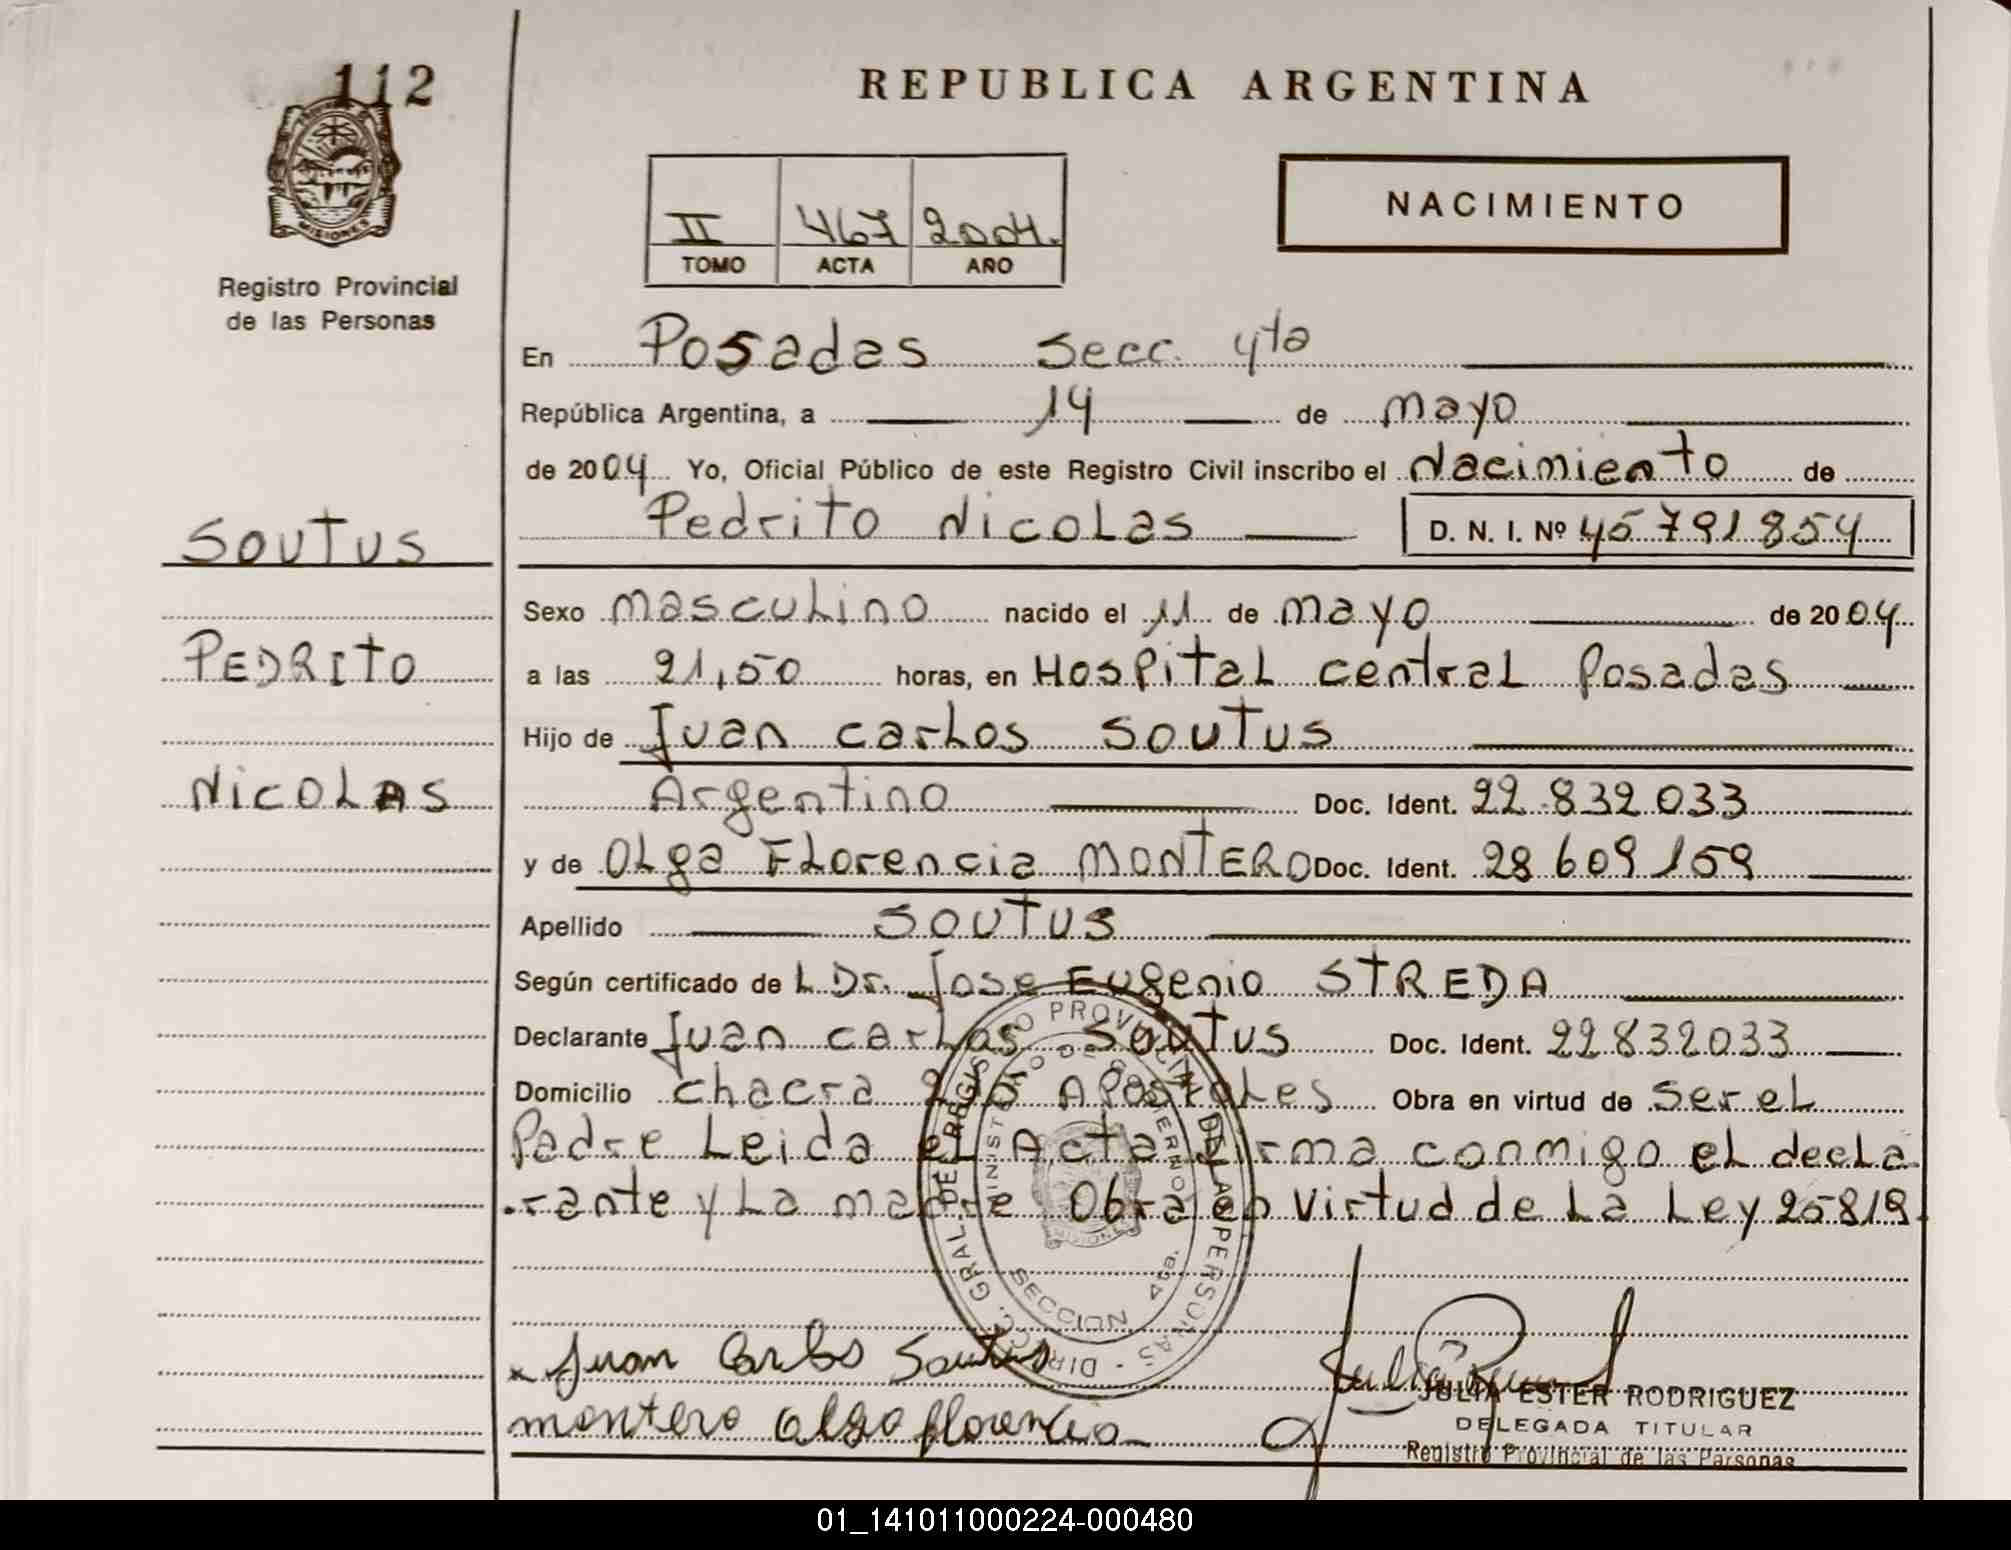 112
REPUBLICA ARGENTINA
MISIONES
Registro Provincial
de las Personas
II 467 2004.
TOMO ACTA AÑO
NACIMIENTO
En Posadas Secc. 4ta
República Argentina, a 14 de mayo
de 2004 Yo, Oficial Público de este Registro Civil inscribo el Nacimiento de
Pedrito Nicolas D. N. I. Nº 45 791 854
SOUTUS
PEDRITO
NICOLAS
Sexo masculino nacido el 11 de mayo de 2004
a las 21,50 horas, en Hospital central Posadas
Hijo de Juan carlos Soutus
Argentino Doc. Ident. 22.832.033
y de Olga Florencia MONTERO Doc. Ident. 28 609 159
Apellido SOUTUS
Según certificado de L Dr. Jose Eugenio STREDA
Declarante Juan carlos Soutus Doc. Ident. 22832033
Domicilio chacra Apostoles Obra en virtud de ser el
Padre Leida el Acta firma conmigo el decla
rante y La madre Obra en virtud de La Ley 25819.
DIRECC. GRAL. DE REGISTRO PROVINCIAL DE LAS PERSONAS
MINISTERIO DE GOBIERNO
MISIONES
SECCION 4ta.
x Juan Carlos Soutus
montero olga florencia
JULIA ESTER RODRIGUEZ
DELEGADA TITULAR
Registro Provincial de las Personas
01_141011000224-000480